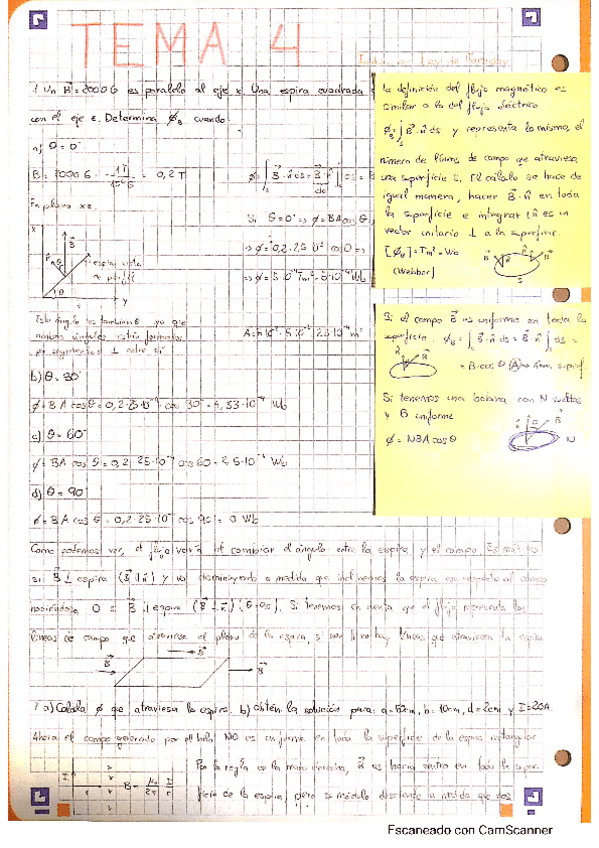 TEMA 4
Ley de Faraday
1. Un B⃗ = 2000 G es paralelo al eje x. Una espira cuadrada
con el eje z. Determina ϕB cuando:
a) θ = 0°
B = 2000 G · 1T / 10⁴ G = 0,2 T
En plano xz.
x
B⃗
espira vista
de perfil
θ
y
Si θ = 0° ⇒ ϕ = BA cos θ
⇒ ϕ = 0,2 · 25 · 10⁻⁴ cos 0 ⇒
⇒ ϕ = 5 · 10⁻⁴ Tm² = 5 · 10⁻⁴ Wb
Este ángulo es también θ ya que
ambos ángulos están formados
por segmentos ⊥ entre sí
b) θ = 30°
ϕ = BA cos θ = 0,2 · 25 · 10⁻⁴ cos 30 = 4,33 · 10⁻⁴ Wb
c) θ = 60°
ϕ = BA cos θ = 0,2 · 25 · 10⁻⁴ cos 60 = 2,5 · 10⁻⁴ Wb
d) θ = 90
ϕ = BA cos θ = 0,2 · 25 · 10⁻⁴ cos 90 = 0 Wb
La definición del flujo magnético es
similar a la del flujo eléctrico
ϕB = ∫ B⃗ · n̂ ds y representa lo mismo, el
número de líneas de campo que atraviesa
una superficie S. El cálculo se hace de
igual manera, hacer B⃗ · n̂ en toda
la superficie e integrar (n̂ es un
vector unitario ⊥ a la superficie.
[ϕB] = Tm² = Wb
(Webber)
S
Si el campo B⃗ es uniforme en toda la
superficie: ϕB = ∫ B⃗ · n̂ ds = B⃗ · n̂ ∫ ds =
= B cos θ (A) → superf
Si tenemos una bobina con N vueltas
y B uniforme
ϕ = NBA cos θ
N
Como podemos ver, el flujo varía al cambiar el ángulo entre la espira y el campo. Es máximo
si B⃗ ⊥ espira (B⃗ ∥ n̂) y va disminuyendo a medida que inclinamos la espira con respecto al campo
haciéndose 0 si B⃗ ∥ espira (B⃗ ⊥ n̂). Si tenemos en cuenta que el flujo representa las
líneas de campo que atraviesa el plano de la espira, si son ∥ no hay líneas que atraviesen la espira
B⃗
B⃗
B⃗
2. a) Calcula ϕ que atraviesa la espira. b) obtén la solución para: b = 10cm, d = 2cm y I = 20A.
Ahora el campo generado por el hilo NO es uniforme en toda la superficie de la espira rectangular
I
B = μ₀/2π · I/r
Por la regla de la mano derecha, B⃗ es hacia dentro en toda la super
ficie de la espira, pero su módulo disminuye a medida que nos
Escaneado con CamScanner